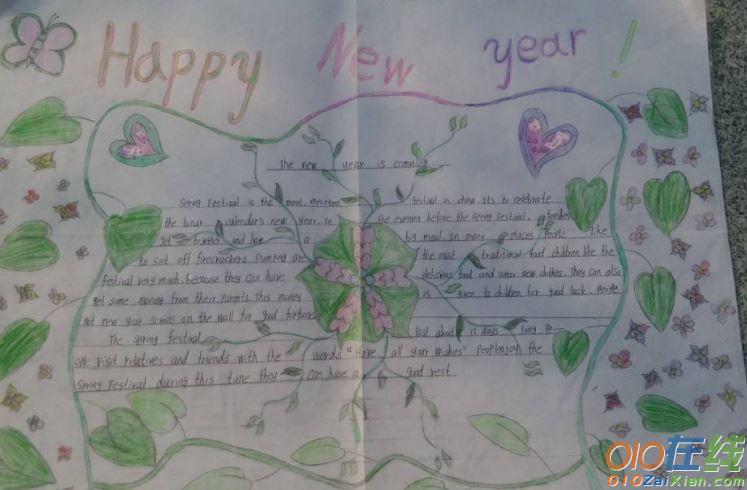 Happy New year !
The new year is coming
Spring Festival is the most important festival in china. It's to celebrate
the lunar calendar's new year. In the evening before the Spring Festival. families
get together and have a big meal. In many places people like
to set off firecrackers. Dumping are the most traditional food children like the
festival very much. because they can have delicious food and wear new clothes. They can also
get some money from their parents. This money is given to children for good luck. People
Put new year scrolls on the wall for good fortune.
The Spring festival last about 15 days long
visit relatives and friends with the words "Have all your wishes" People enjoy the
Spring Festival during this time they can have a good rest.
010在线
010ZaiXian.com